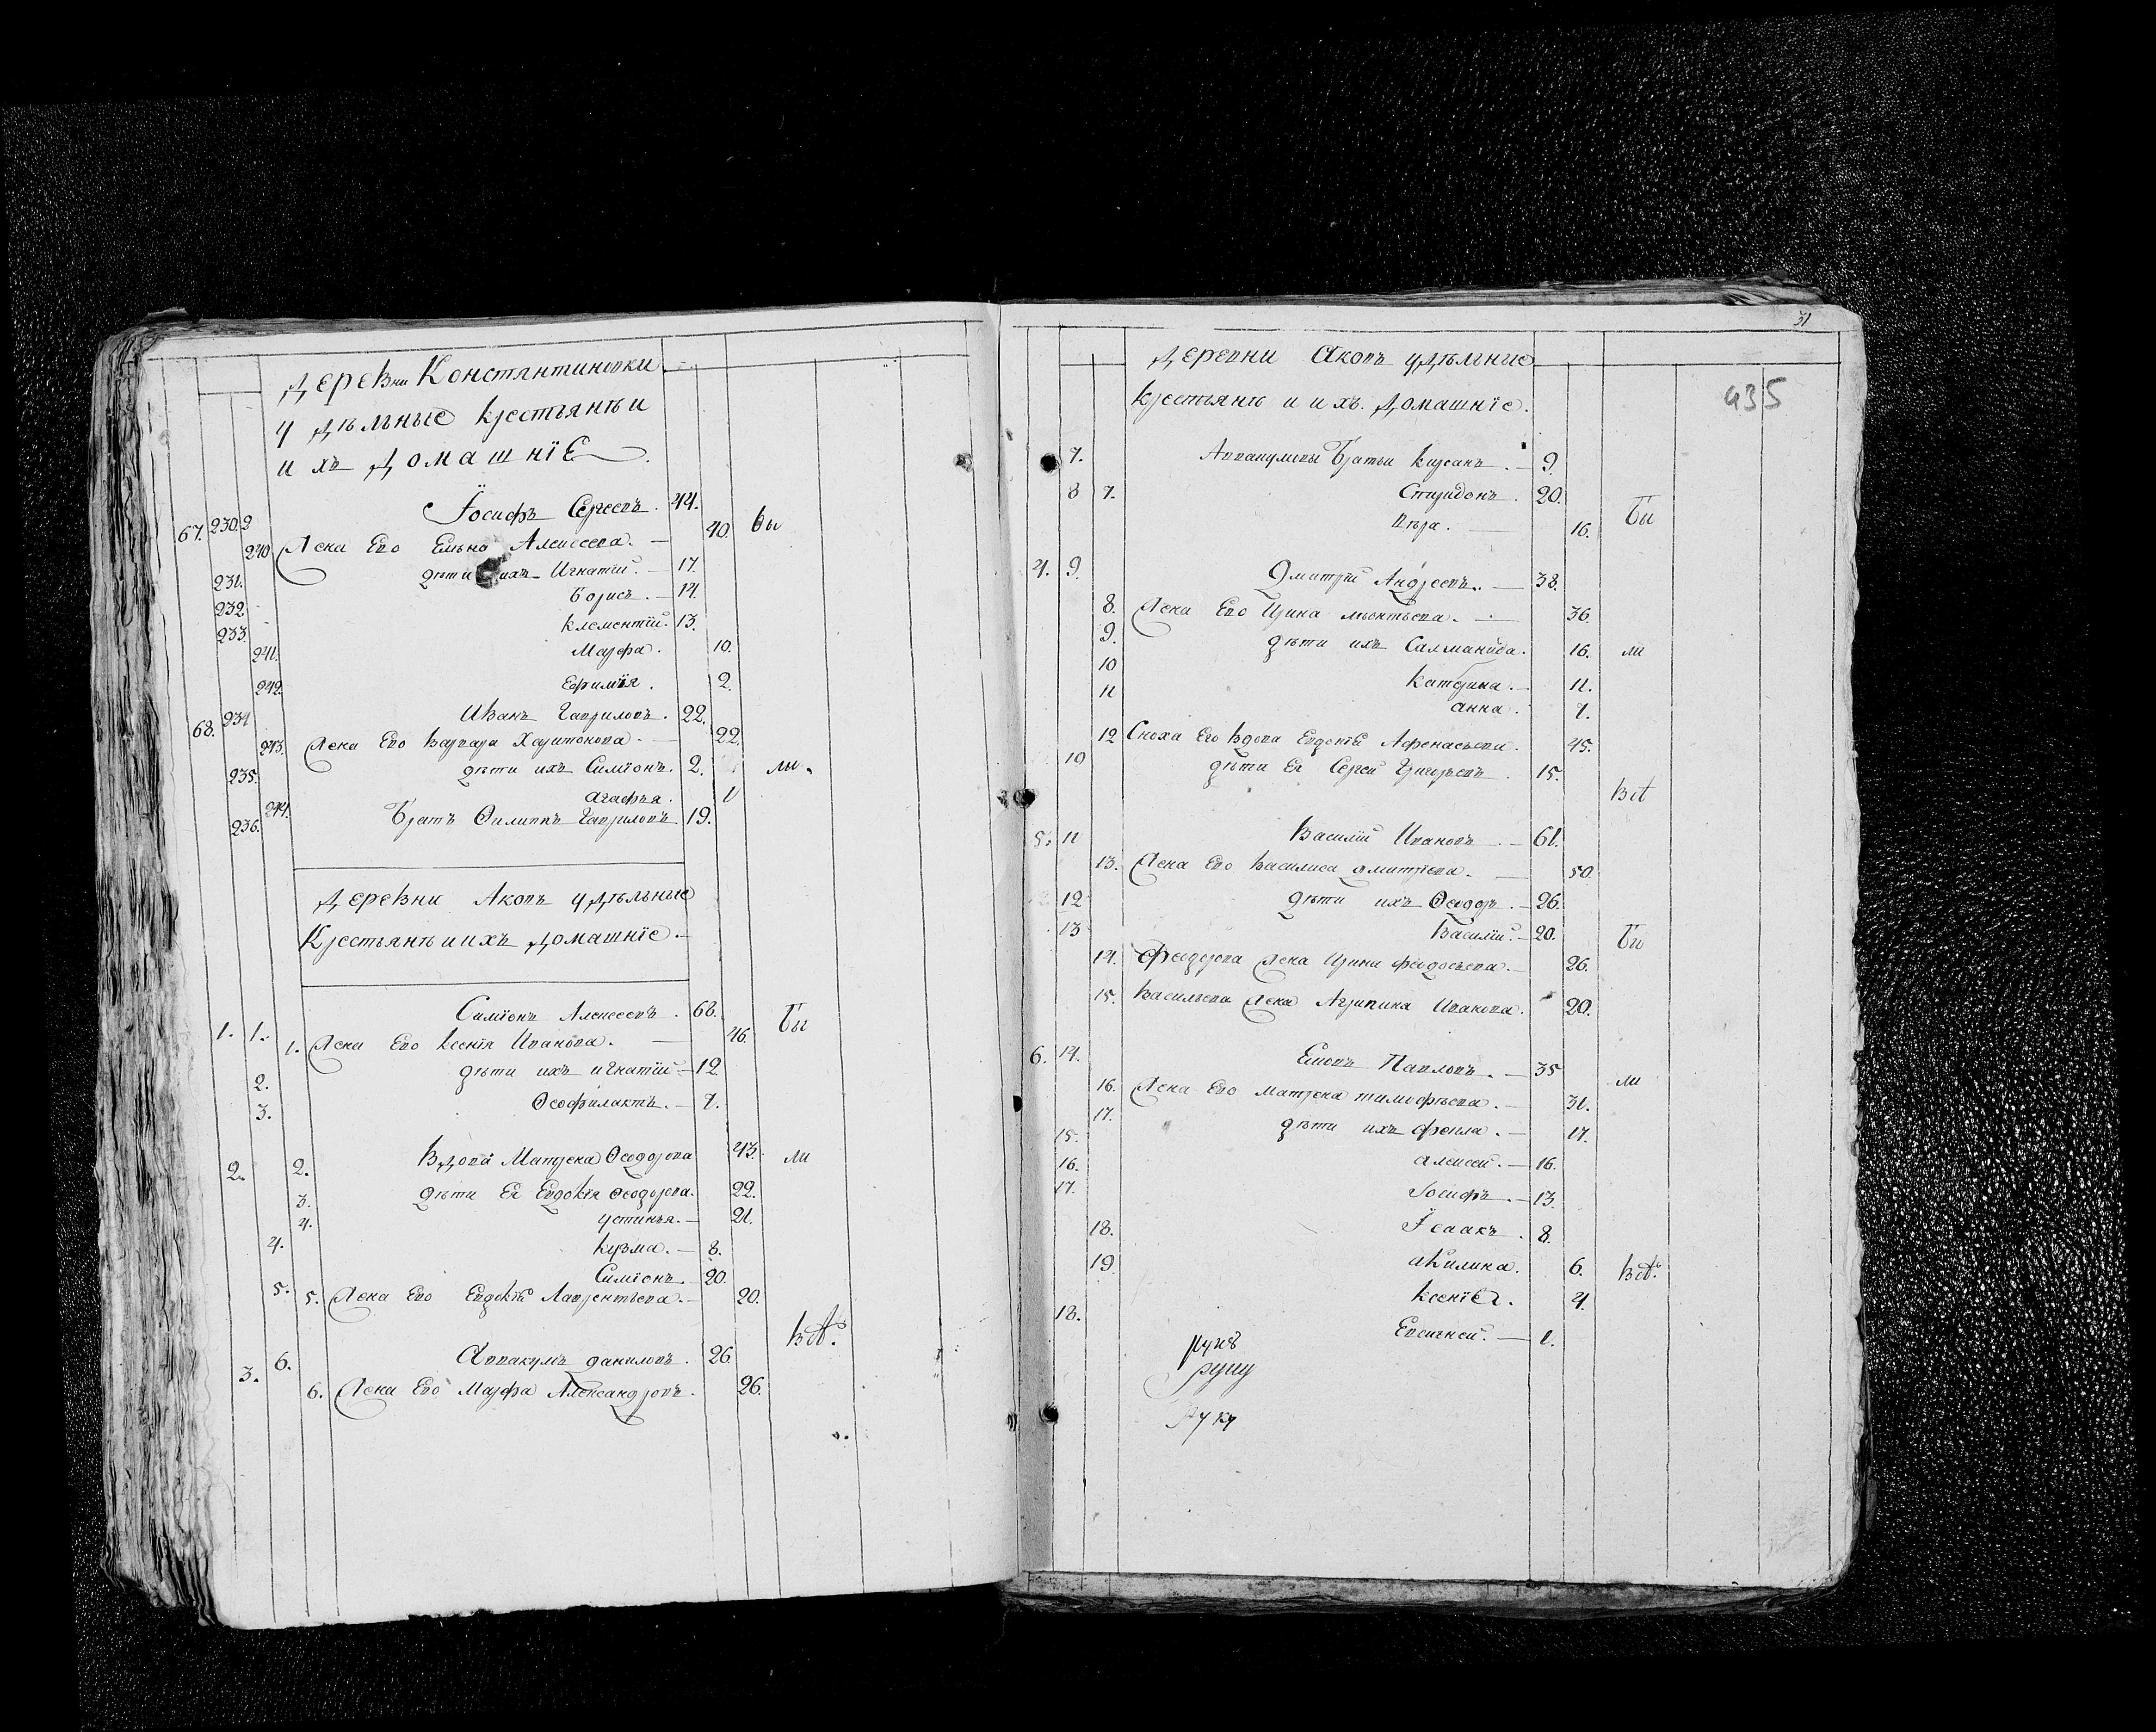 Деревни Константиновки
удѣльные крестьянѣ и
ихъ домашнїе
67. 230. Іосифъ Сергеевъ. 44.
240 Жена Его Елѣна Алексеева. — 40. бы
231. дѣти ихъ Игнатїй. — 17.
232. Борисъ. — 14.
233. Климентїй. 13.
241. Марфа. 10.
242. Ефимїя. 2.
68. 234 Иванъ Гавриловъ. 22.
243. Жена Его Варвара Харитонова. — 22.
235. дѣти ихъ Симїонъ. 2. ли
244. Агафья. 1
236. Братъ Филиппъ Гавриловъ 19.
Деревни Аковъ удѣльные
Крестьянѣ и ихъ домашнїе. —
1. 1. Симїонъ Алексеевъ. 68. Бы
1. Жена Его Ксенїя Иванова. — 46.
2. дѣти ихъ Игнатїй — 12.
3. Ѳеофилактъ. — 7.
2. 2. Вдова Матрена Ѳеодорова 43. ли
3. дѣти Ея Евдокїя Ѳеодорова. 22.
4. Устинья. — 21.
4. Кузма. — 8.
5. Симїонъ. — 20.
5. Жена Его Евдокїя Лаврентьева. — 20.
всѣ.
3. 6. Аввакумъ Даниловъ. 26
6. Жена Его Марфа Александровъ. 26.
31
435
Деревни Аковъ удѣльные
крестьянѣ и ихъ домашнїе.
7. Аввакумовы Братьи Кирсанъ. — 9.
8 7. Спиридонъ. 20.
Вѣра. — 16. Бы
4. 9. Дмитрїй Андреевъ. — 38.
8. Жена Его Ирина Леонтьева. — 36.
9. дѣти ихъ Саломанида. 16. ли
10 Катерина. — 11.
11 Анна. 7.
12 Сноха Его Вдова Евдокїя Афонасьева. 45.
10 дѣти Ея Сергей Григорьевъ. 15.
всѣ
5. 11 Василїй Ивановъ. — 61.
13. Жена Его Василиса Дмитрїева. — 50.
12 дѣти ихъ Ѳеодоръ. — 26.
13 Василїй. — 20. Бы
14. Феодорова Жена Ирина Феодосьева. — 26.
15. Васильева Жена Агрипина Иванова. 20.
6. 14. Емовъ Павловъ. — 35 ли
16. Жена Его Матрена Тимофѣева. — 31.
17. дѣти ихъ Фекла. — 17.
15. Алексей. — 16.
16. Іосифъ. — 13.
17. Ісаакъ. 8.
18. Акилина. 6. всѣ.
19 Ксенїя. 4.
18. Евсигней. — 1.